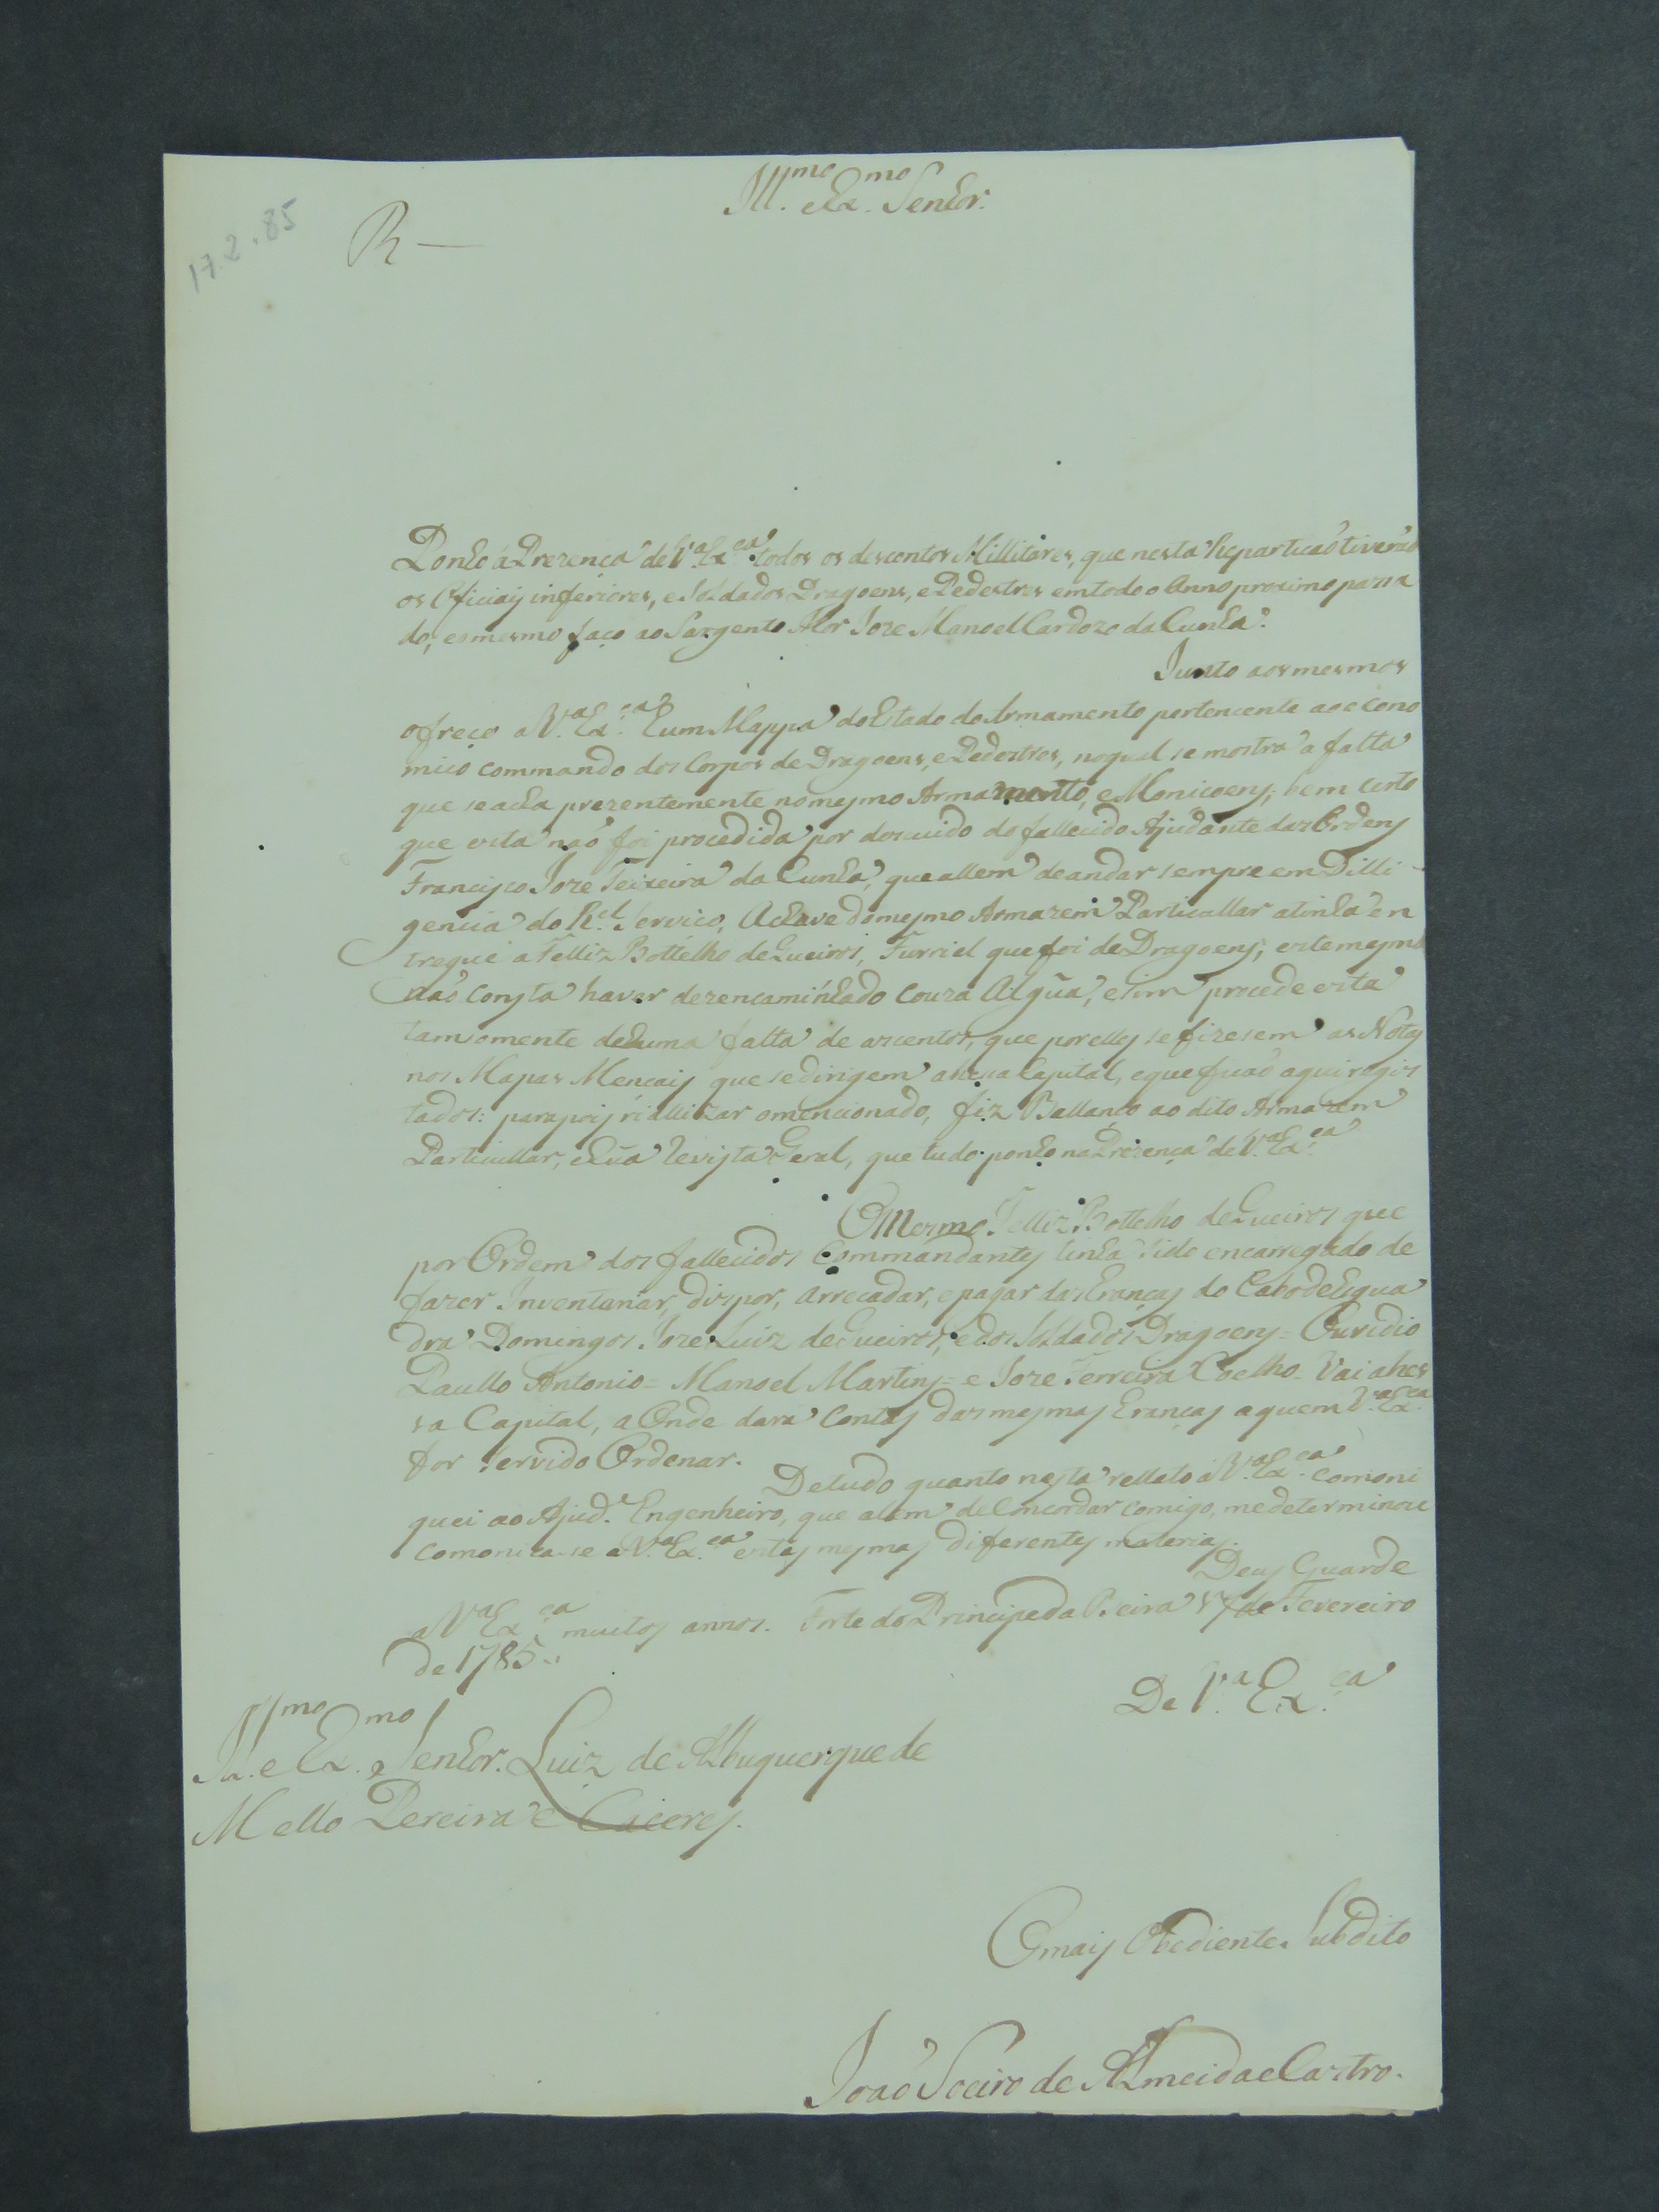 Ill.mo e Ex.mo Senhor.
17.2.85
R —
Ponho á Prezença de V.a Ex.ca todos os descontos Millitares, que nesta Repartiçaõ tiveraõ
os Oficiais inferiores, e Soldados Dragoens, e Pedestres em todo o Anno proximo passa
do, e o mesmo faço ao Sargento Mor Joze Manoel Cardozo da Cunha.
Junto aos mesmos
ofreço a V.a Ex.ca hum Mappa do Estado do Armamento pertencente ao econo
mico commando dos Corpos de Dragoens, e Pedestres, no qual se mostra a falta
que se acha prezentemente no mesmo Armamento, e Monicoens; bem certo
que esta naõ foi procedida por descuido do fallecido Ajudante das Ordens
Francisco Joze Teixeira da Cunha, que allem de andar sempre em Dilli-
gencia do R.el Servico, A chave do mesmo Armazem Particullar a tinha en
tregue a Felliz Bottelho de Queiros, Furriel que foi de Dragoens; e este mesmo
naõ consta haver dezencaminhado couza Algũa, e sim procede esta
tamsomente de huma falta de ascentos, que por elles se fizesem as Notas
nos Mapas Mencais que se dirigem a hessa Capital, e que ficaõ aqui regis
tados: para pois riallizar o mencionado, fiz Ballanço ao dito Armazem
Particullar, e hũa Revista Geral, que tudo ponho na Prezença de V.a Ex.ca
O Mesmo Felliz Bottelho de Queiros que
por Ordem dos fallecidos Commandantes tinha sido encarregado de
fazer Inventariar, dispor, arrecadar, e pagar das Eranças do Cabo de Esqua
dra Domingos Joze Luiz de Queiros, e dos Soldados Dragoens = Ouvidio
Paullo Antonio = Manoel Martins = e Joze Ferreira Coelho = Vai a hes
sa Capital, a Onde dara Contas das mesmas Eranças a quem V.a Ex.ca
for servido Ordenar.
De tudo quanto nesta rellato á V.a Ex.ca comoni
quei ao Ajud.e Engenheiro, que alem de Concordar comigo, me determinou
comonica-se a V.a Ex.ca estas mesmas diferentes materias.
Deus Guarde
a V.a Ex.ca muitos annos. Forte do Principe da Beira 17 de Fevereiro
de 1785.
De V.a Ex.ca
Ill.mo e Ex.mo Senhor. Luiz de Albuquerque de
Mello Pereira e Caceres.
O mais Obediente Subdito
Joaõ Soeiro de Almeida e Castro.